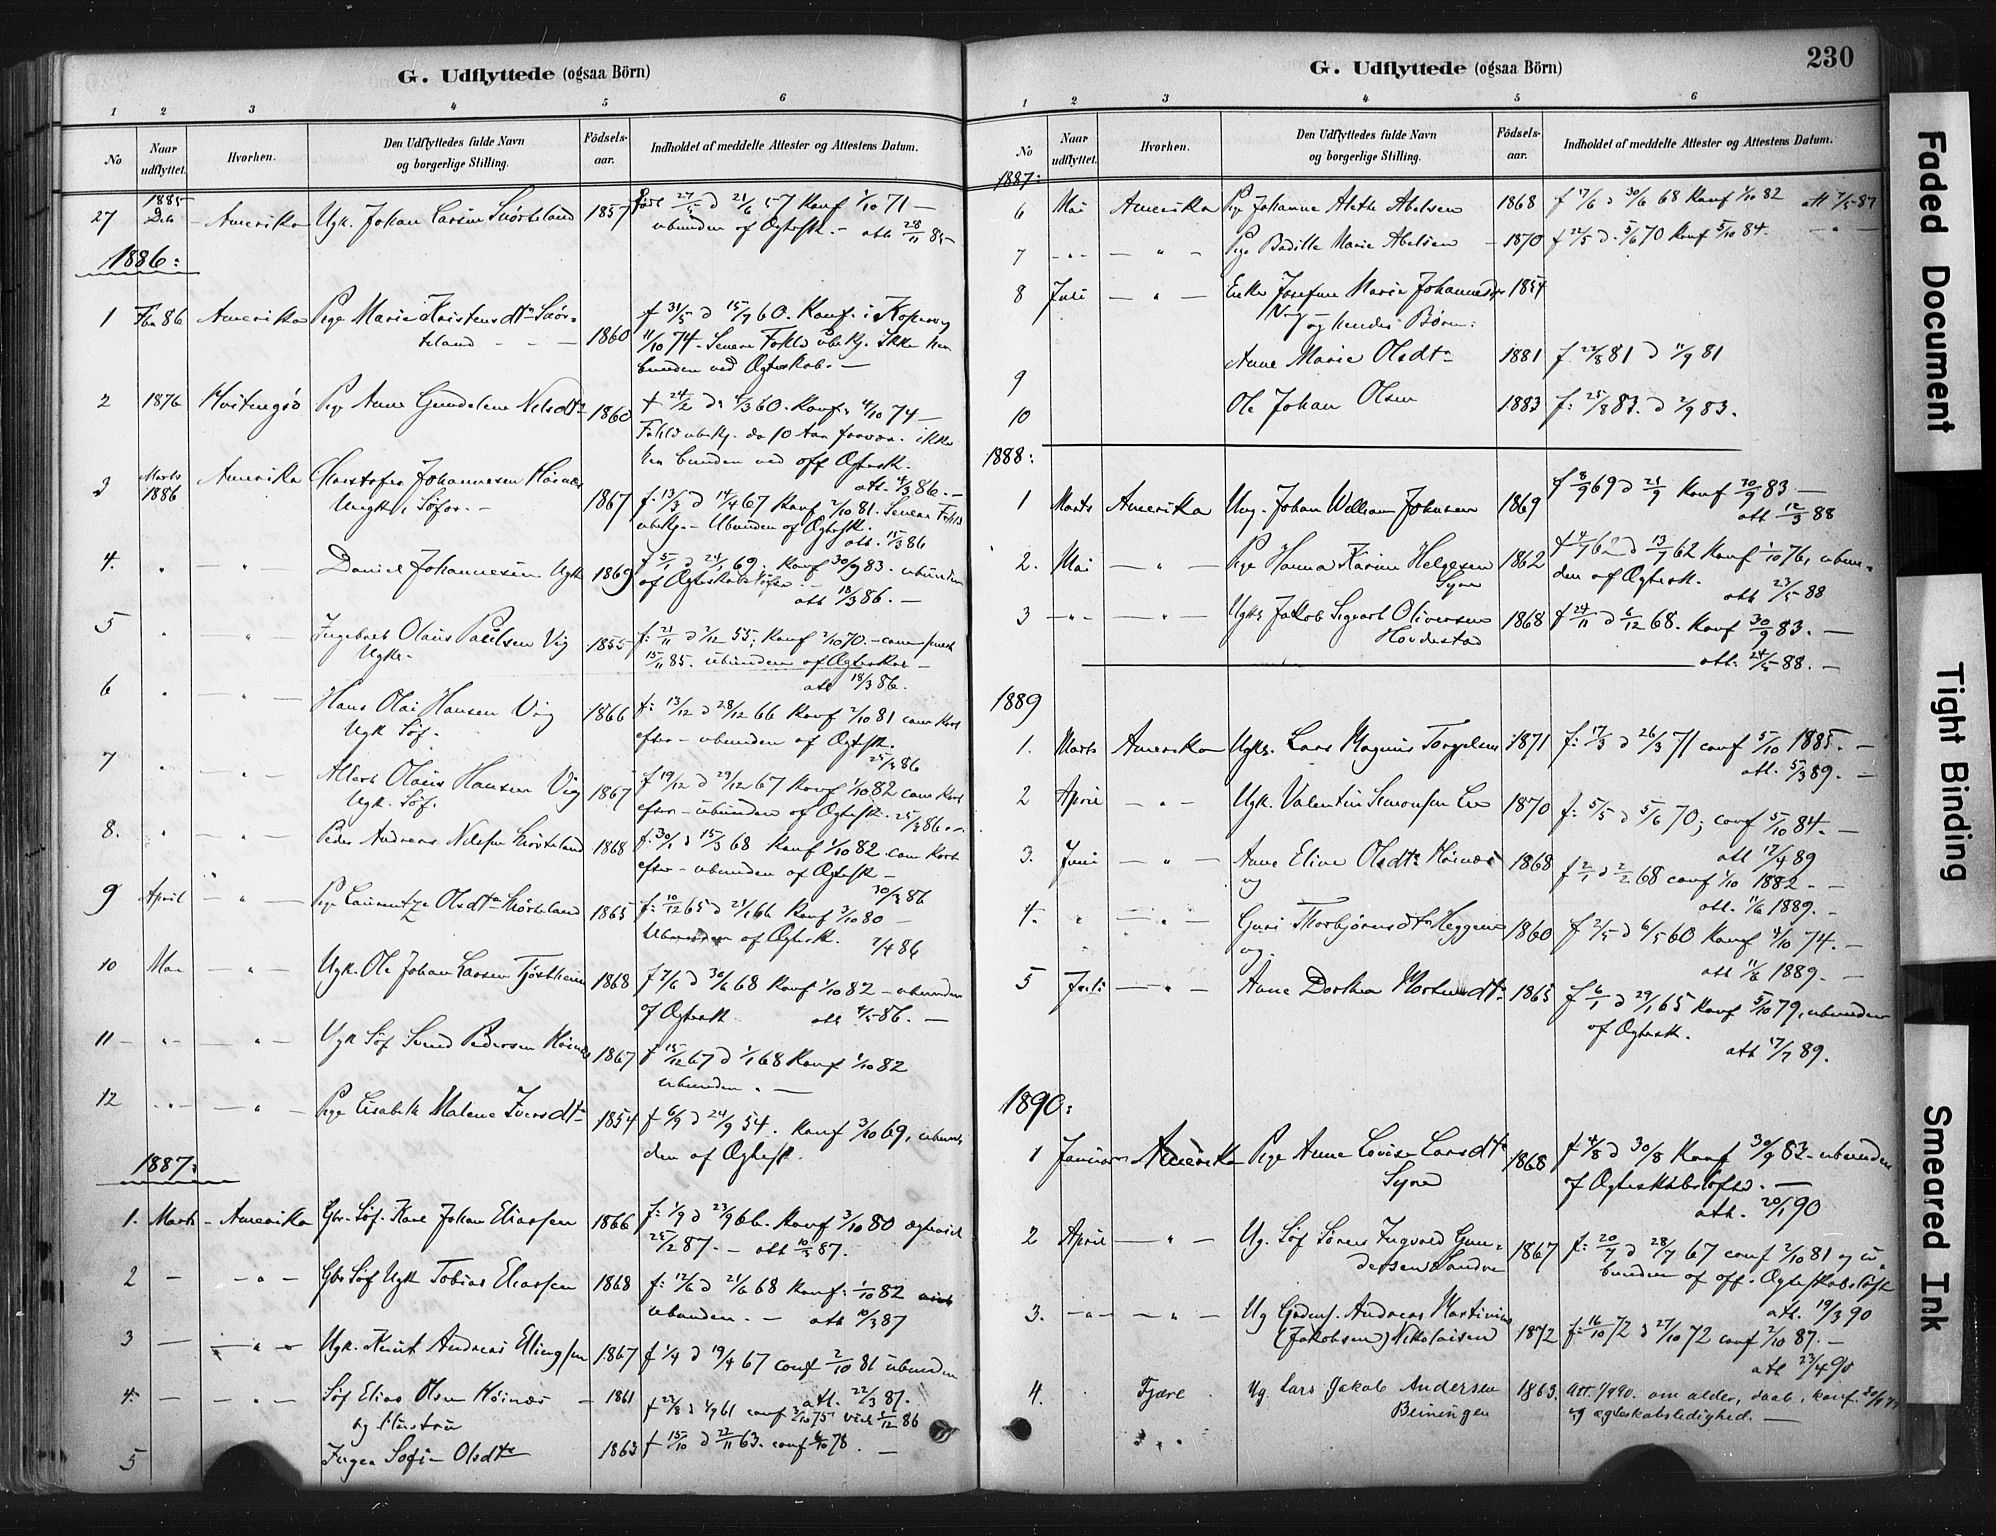 G. Udflyttede (ogsaa Börn)
1 2 3 4 5 6
No Naar udflyttet. Hvorhen. Den Udflyttedes fulde Navn og borgerlige Stilling. Födsels-aar. Indholdet af meddelte Attester og Attestens Datum.
1885
27 Amerika Ugk. Johan Larsen 1857 21/6 57 Konf 1/10 71 —
ubunden af Ægtesk. - att 28/11 85
1886:
1 86 Amerika Pige Marie Kristensdtr 1860 f 31/5 d 15/7 60. Konf. i Kopervig
11/10 74. Senere Forhld ubekj. Ikke
bunden ved Ægteskab. —
2 1876 Hvitingsö Pige Anne Gundelene Nelsdtr 1860 f 24/2 d. 4/3 60. Konf. 4/10 74 —
Forhld ubekj. da 10 Aar ikke
bunden ved Ægtesk.
att. 4/3 86. —
3 Marts 1886 Amerika Johannesen Höinæs 1867 f. 13/3 d 14/4 67 Konf 2/10 81. Senere Forhld
ubekj. - Ubunden af Ægtesk.
att. 86
4. " — " — Daniel Johannesen Ugk 1869 f 5/1 d 24/1 69. Konf 30/9 83. ubunden
af Ægteskabslöfter
att 18/3 86. —
5 " " — Ingebret Olaus Paulsen Vig 1855 f. 21/11 d 2/12 55; Konf 2/10 70. —
Ugk. 15/11 85. ubunden af Ægteskab —
att 18/3 86.
6 " — " — Hans Olai Hansen Vig 1866 f: 13/12 d 28/12 66 Konf 2/10 81
Ugk Söf. efter — ubunden af Ægtesk.
25/3 86
7 " — " — Albert Olaus Hansen Vig 1867 f 19/12 d 29/12 67 Konf 1/10 82
Ugk. Söf. efter — ubunden af Ægtesk. 25/3 86.
8. " — " — Peder Andreas Nilsen 1868 f. 30/1 d 15/3 68 Konf 1/10 82
efter — ubunden af Ægtesk —
30/3 86
9 April — " — Pige Laurentze Olsdtr 1865 f: 10/12 65 d 21/1 66 Konf 3/10 80 —
Ubunden af Ægtesk. 2/4 86
10 Mai — " — Ugk. Ole Johan Larsen Tjöstheim 1868 f 7/6 d 30/6 68 Konf 1/10 82 — ubunden
af Ægtesk att 4/5 86. —
11 — " — " — Ugk Söf Svend Pedersen Höinæs 1867 f 15/12 67 d 1/1 68 Konf 1/10 82
ubunden " —
12 " — — " — Pige Lisabeth Malene Iversdtr 1854 f 6/9 d 24/9 54. Konf 3/10 69, ubun-
den af Ægtesk.
1887:
1. Marts — Amerika Gbr. Söf. Karl Johan Eliassen 1866 f: 1/9 d 23/9 66. Konf 3/10 80
25/2 87. — att 10/3 87.
2 — — " — Gbr Söf Ugk Tobias Eliassen 1868 f: 12/6 d 21/6 68 Konf. 1/10 82
ubunden. — att 10/3 87
3 — — " — Ugk. Knut Andreas Ellingsen 1867 f 1/4 d 19/4 67 conf 2/10 81 ubunden
4. — — " — Söf Elias Olsen Höinæs — 1861 att. 22/3 87.
og Hustru f 23/8 d 1/9 61 conf 3/10 75 86
5 Inger Sofie Olsdtr 1863 f 15/10 d 22/11 63. conf 6/10 78. —
G. Udflyttede (ogsaa Börn)
230
1 2 3 4 5 6
No Naar udflyttet. Hvorhen. Den Udflyttedes fulde Navn og borgerlige Stilling. Födsels-aar. Indholdet af meddelte Attester og Attestens Datum.
1887:
6 Mai Amerika Pige Johanne Alethe Abelsen 1868 f 17/6 d 30/6 68 Konf 1/10 82 att 7/5 87
7 — " — — " — Pige Bodille Marie Abelsen — 1870 f 22/5 d. 5/6 70 Konf 5/10 84. — " —
8 Juli — " — Enke Josefine Marie Johannesdtr 1854
Vig og hendes Börn:
9 Anne Marie Olsdtr 1881 f. 22/8 81 d 11/9 81
10 Ole Johan Olsen 1883 f: 25/8 83. d 2/9 83.
1888:
1 Marts Amerika Ung. Johan William Johnsen 1869 f 8/9 69 d 21/9 Konf 30/9 83 —
att 12/3 88
2. Mai — " — Pige Hanna Karine Helgesen 1862 f 4/7 62 d 13/7 62 Konf 1/10 76, ubun-
Syre den af Ægtesk.
att 23/5 88
3 — " — — " — Ugk. Jakob Sigvart Oliversen 1868 f 24/11 d 6/12 68. Konf 30/9 83. —
Hovdestad
att. 24/5 88. —
1889
1. Marts Amerika Ugk. Lars Magnus Torgelsen 1871 f: 17/3 d 26/3 71 conf 5/10 1885. —
att. 5/3 89. —
2 April — " — Ugk. Valentin Simonsen Lie 1870 f: 5/5 d 5/6 70; conf 5/10 84. —
att 17/4 89
3. Juni — " — Anne Eline Olsdtr Höinæs 1868 f 2/1 d 2/2 68 conf 1/10 1882. —
og att. 11/6 1889. —
4. " — " — Guri Thorbjörnsdtr Heggem 1860 f 2/5 d 6/5 60 Konf 4/10 74. —
og. att 11/6 1889. —
5 Juli — " — Anne Dorthea Mortensdtr 1865 f 6/1 d 29/1 65 Konf 5/10 79, ubunden
af Ægtesk.
att 17/7 89.
1890:
1 Januar Amerika Pige Anne Lovise Larsdtr 1868 f 4/8 d 30/8 Konf 30/9 83 — ubunden
Syre af Ægteskabslöfte. —
att. 20/1 90
2 April — " — Ug. Söf Sören Ingvald Gun- 1867 f: 20/7 d 28/7 67 conf 2/10 81 og u-
dersen Sandve bunden af off. Ægteskabslöft
att. 19/3 90
3. — " — — " — Ug Andreas Martinius
(Jakobsen) Nikolaisen 1872 f: 16/10 72 d 27/10 72 conf 2/10 87. —
att 23/4 90
4. Tjære Ug. Lars Jakob Andersen 1863. Att. 1/9 90. om alder, daab, konf.
og ægteskabsledighed. —
Faded Document
Tight Binding
Smeared Ink